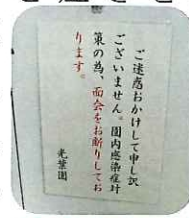 ご迷惑おかけして申し訳
ございません。園内感染症対
策の為、面会をお断りしてお
ります。
光葉園